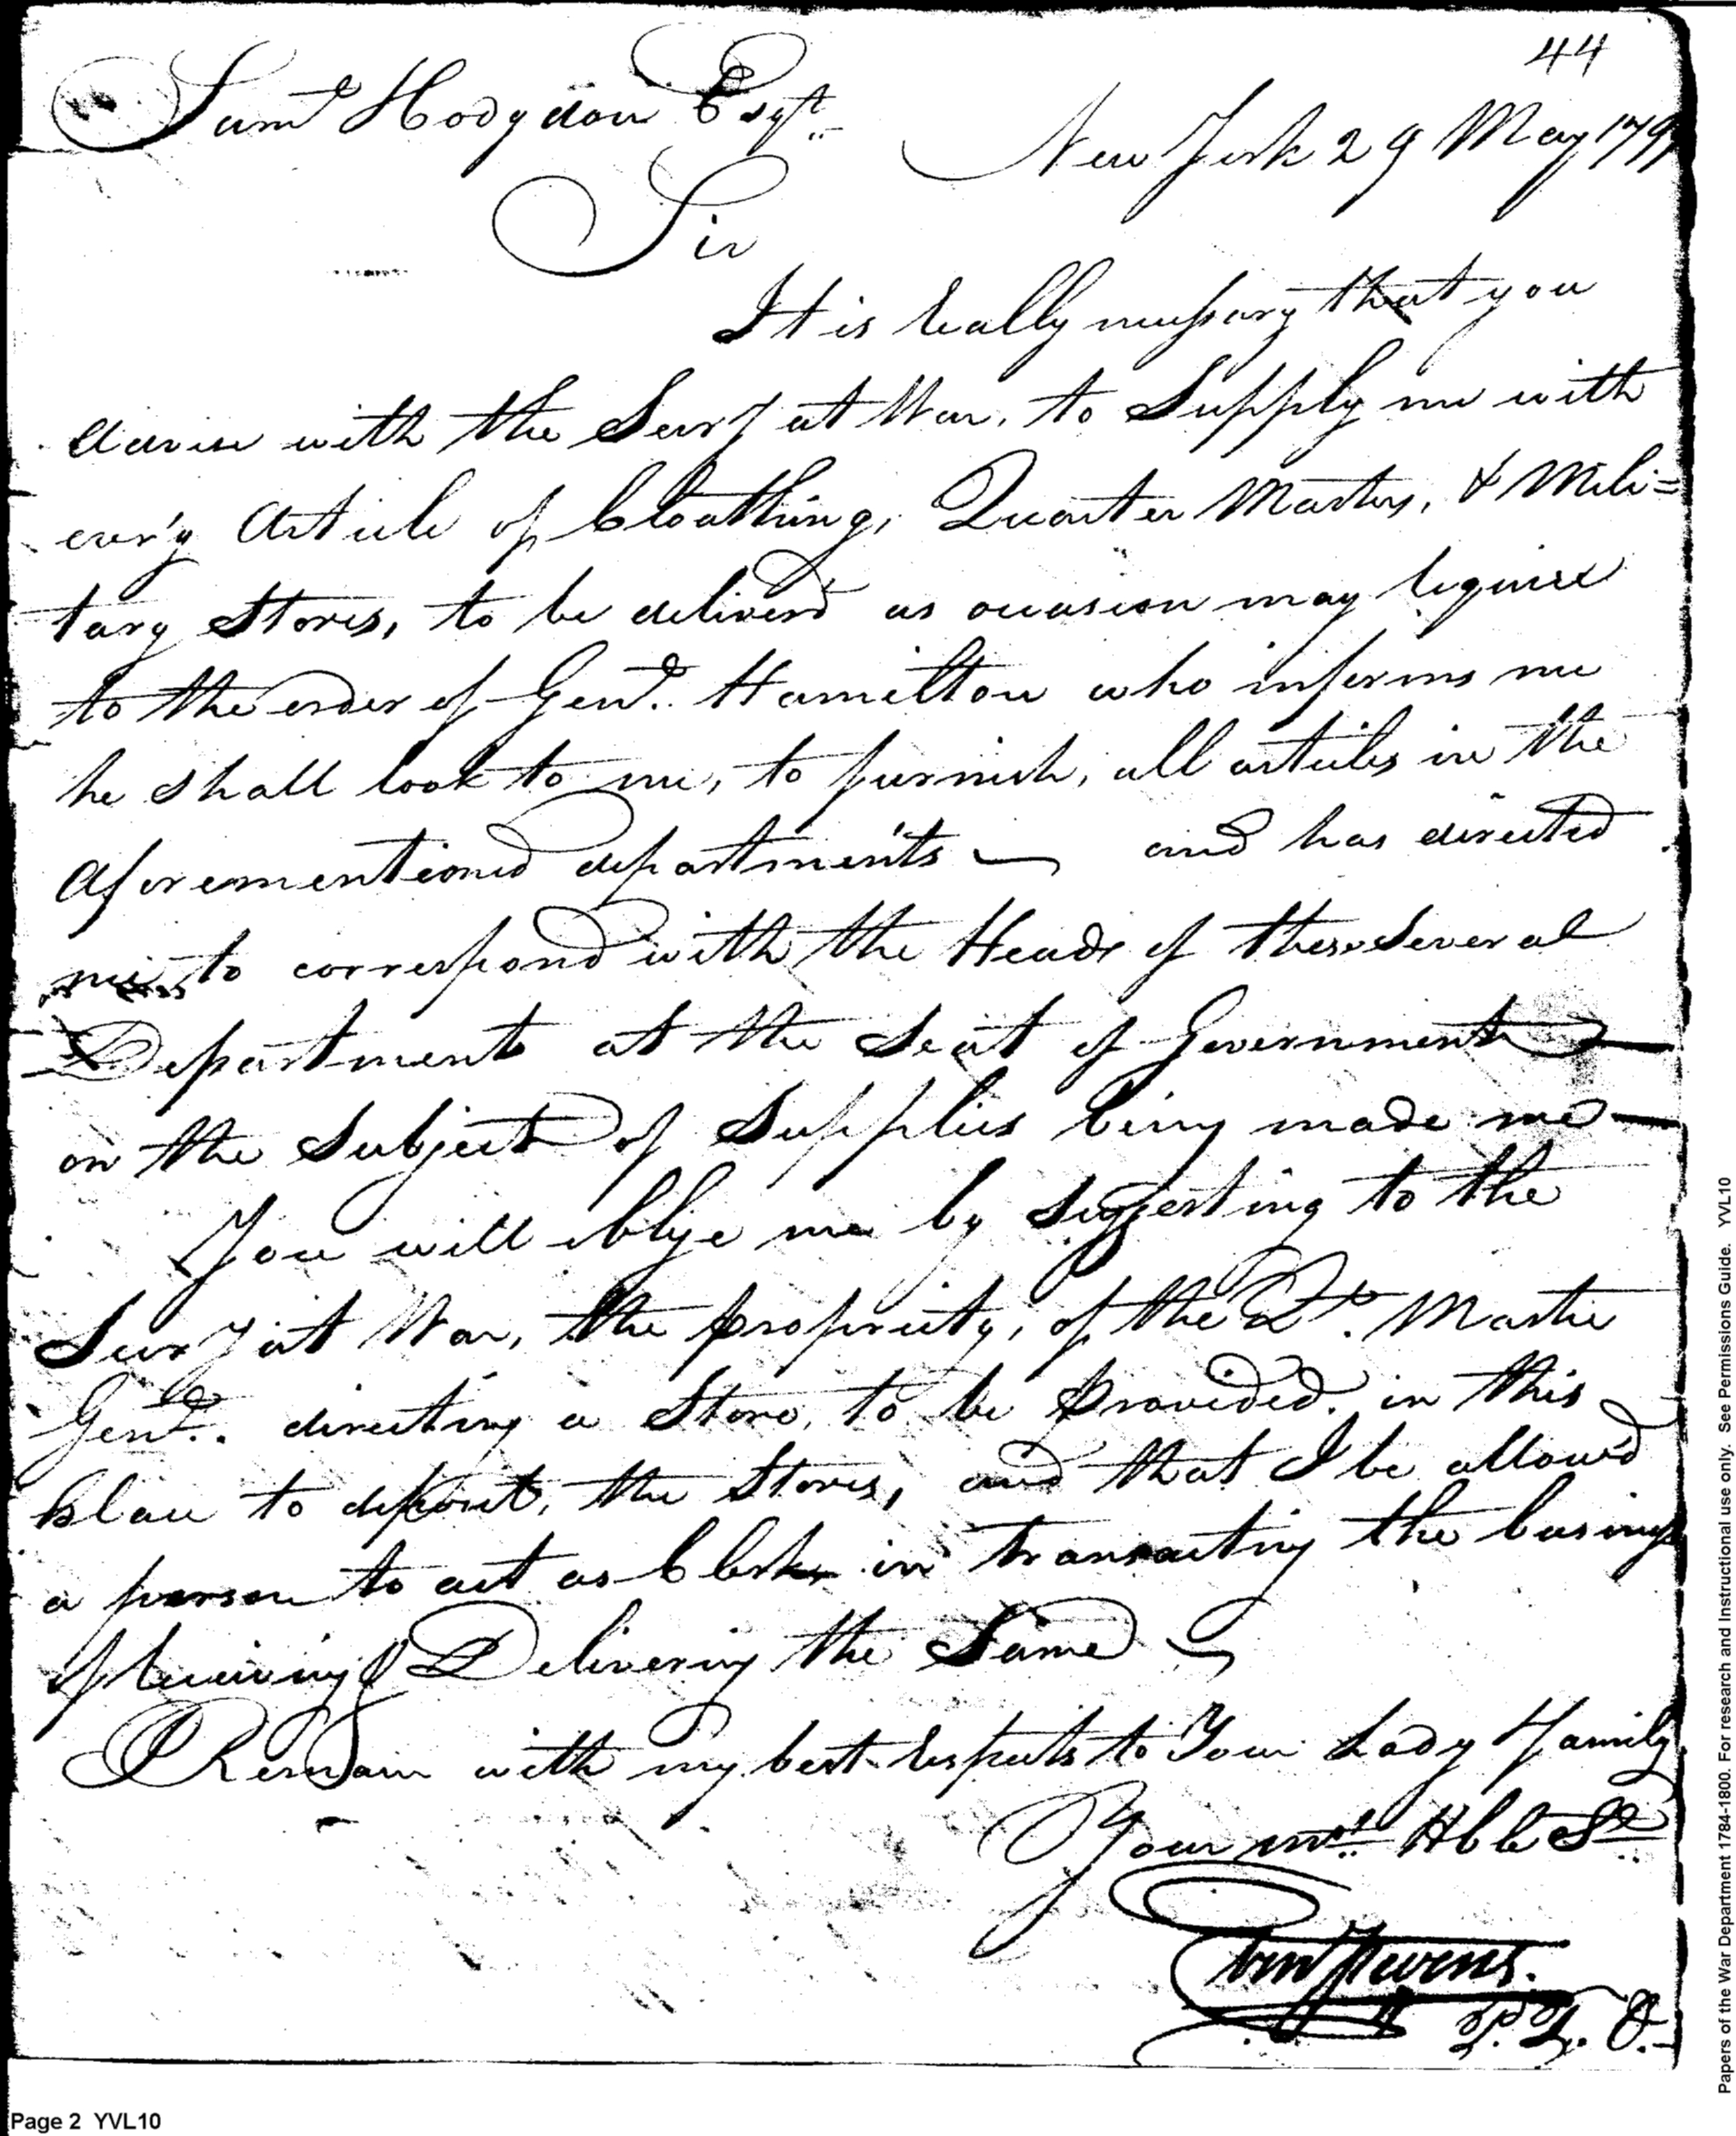 44
Saml Hodgdon Esqr.
New York 29 May 1799
Sir
It is really necessary that you
advise with the Secry at War, to Supply me with
every Article of Cloathing, Quarter Masters, & Mili=
tary Stores, to be deliverd as occasion may require
to the order of Genl. Hamilton who informs me
he shall look to me, to furnish, all articles in the
aforementioned departments — and has directed
me to correspond with the Heads of these Several
Departments at the Seat of Government —
on the Subject of Supplies being made me —
You will oblige me by Suggesting to the
Secry at War, the propriety, of the Qr. Master
Genl. directing a Store, to be provided in this
place to deposit, the Stores, and that I be allow'd
a person to act as Clerk in transacting the business
of receiving & Delivering the Same —
I Remain with my best respects to Your Lady & family
Your mst. Hble St.
Eben Stevens.
Page 2 YVL10
Papers of the War Department 1784-1800. For research and Instructional use only. See Permissions Guide. YVL10